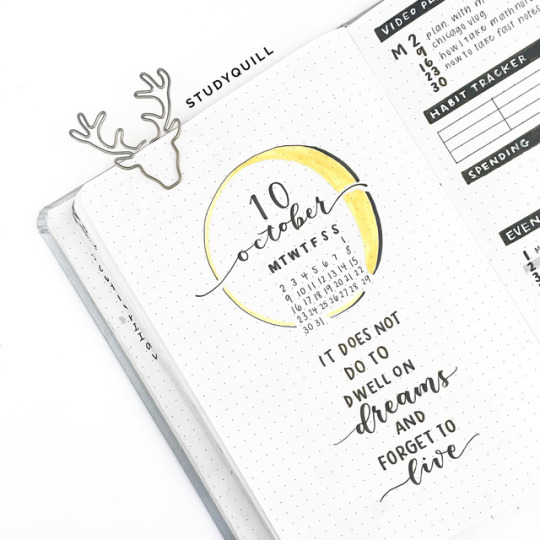 STUDYQUILL
10
october
M T W T F S S
1
2 3 4 5 6 7 8
9 10 11 12 13 14 15
16 17 18 19 20 21 22
23 24 25 26 27 28 29
30 31
IT DOES NOT
DO TO
DWELL ON
dreams
AND
FORGET TO
live
VIDEO
M 2 plan with m
9 chicago vlog
16 how I take math note
23 how to take fast notes
30
HABIT TRACKER
SPENDING
EVEN
1
2